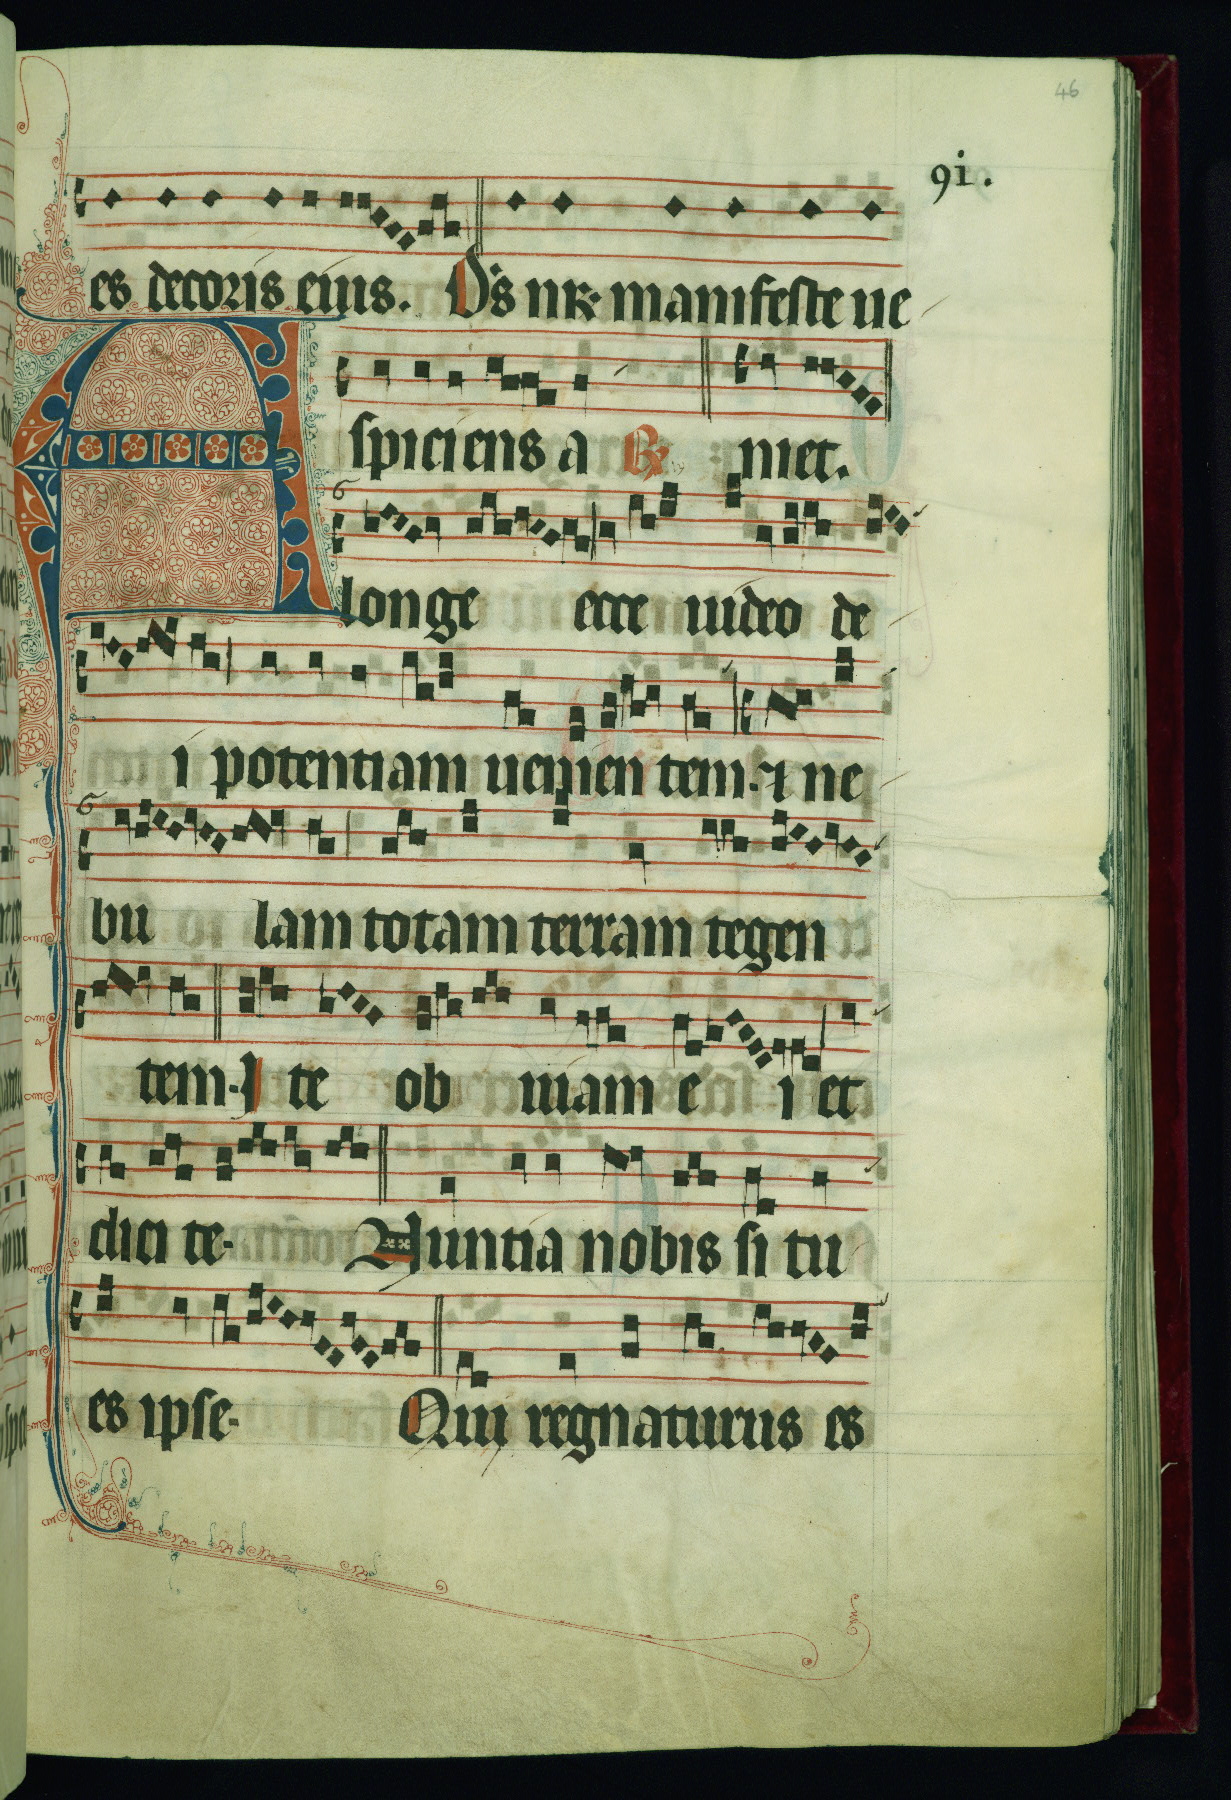 46
91.
es decoris eius. Ds nr manifeste ue
Aspiciens a R niet.
longe ecce uideo de
i potentiam uenien tem. et ne
bu lam totam terram tegen
tem. I te ob uiam e i et
dici te. Nuntia nobis si tu
es ipse. Qui regnaturus es